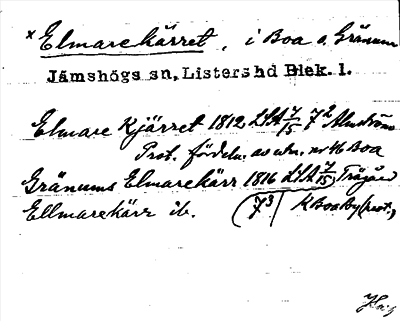 x Elmarekärret, i Boa o. Gränum
Jämshögs sn, Listers hd Blek. l.
Elmare Kjärret 1812 LSA 7/15 7² Almström
Prot. fördeln. av utm. nr 16 Boa
Gränums Elmarekärr 1816 LSA 7/15, Trägård
Ellmarekärr ib. (7³) K Boaby (rest.)